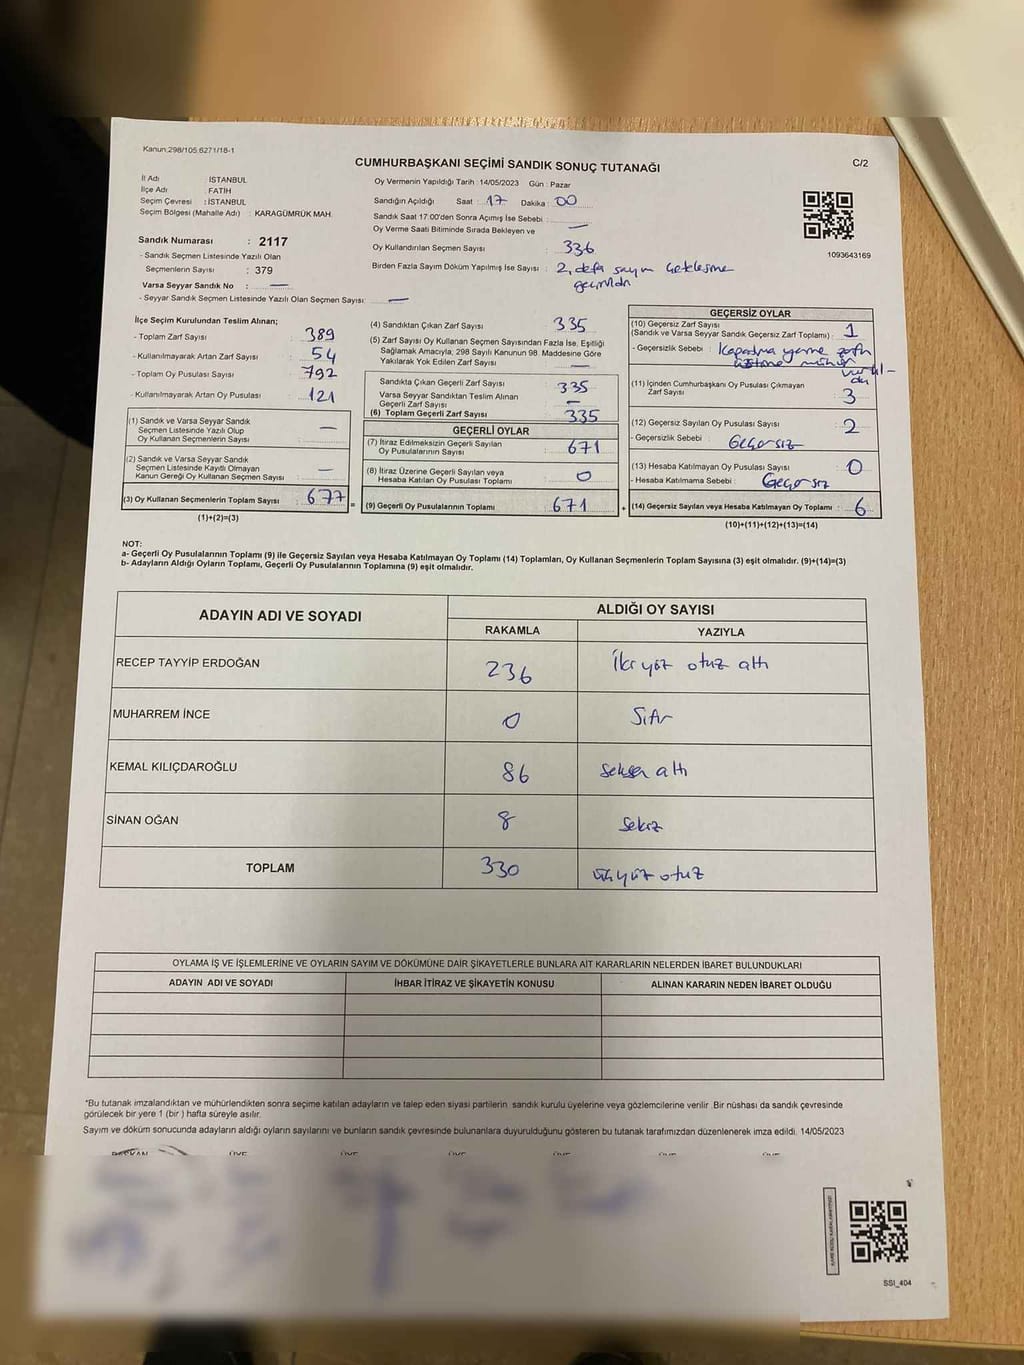 Kanun.298/105.6271/18-1
CUMHURBAŞKANI SEÇİMİ SANDIK SONUÇ TUTANAĞI
C/2
İl Adı : İSTANBUL
İlçe Adı : FATİH
Seçim Çevresi : İSTANBUL
Seçim Bölgesi (Mahalle Adı) : KARAGÜMRÜK MAH.
Oy Vermenin Yapıldığı Tarih : 14/05/2023 Gün : Pazar
Sandığın Açıldığı Saat : 17 Dakika : 00
Sandık Saat 17:00'den Sonra Açımış İse Sebebi :
Oy Verme Saati Bitiminde Sırada Bekleyen ve
Oy Kullandırılan Seçmen Sayısı : 336
Birden Fazla Sayım Döküm Yapılmış İse Sayısı : 2. defa sayım
1093643169
Sandık Numarası : 2117
- Sandık Seçmen Listesinde Yazılı Olan
Seçmenlerin Sayısı : 379
Varsa Seyyar Sandık No : —
- Seyyar Sandık Seçmen Listesinde Yazılı Olan Seçmen Sayısı: —
İlçe Seçim Kurulundan Teslim Alınan;
- Toplam Zarf Sayısı : 389
- Kullanılmayarak Artan Zarf Sayısı : 54
- Toplam Oy Pusulası Sayısı : 792
- Kullanılmayarak Artan Oy Pusulası : 121
(1) Sandık ve Varsa Seyyar Sandık
Seçmen Listesinde Yazılı Olup
Oy Kullanan Seçmenlerin Sayısı : —
(2) Sandık ve Varsa Seyyar Sandık
Seçmen Listesinde Kayıtlı Olmayan
Kanun Gereği Oy Kullanan Seçmen Sayısı : —
(3) Oy Kullanan Seçmenlerin Toplam Sayısı : 677 =
(1)+(2)=(3)
(4) Sandıktan Çıkan Zarf Sayısı : 335
(5) Zarf Sayısı Oy Kullanan Seçmen Sayısından Fazla İse, Eşitliği
Sağlamak Amacıyla, 298 Sayılı Kanunun 98. Maddesine Göre
Yakılarak Yok Edilen Zarf Sayısı : —
Sandıkta Çıkan Geçerli Zarf Sayısı : 335
Varsa Seyyar Sandıktan Teslim Alınan
Geçerli Zarf Sayısı : —
(6) Toplam Geçerli Zarf Sayısı : 335
GEÇERLİ OYLAR
(7) İtiraz Edilmeksizin Geçerli Sayılan
Oy Pusulalarının Sayısı : 671
(8) İtiraz Üzerine Geçerli Sayılan veya
Hesaba Katılan Oy Pusulası Toplamı : 0
(9) Geçerli Oy Pusulalarının Toplamı : 671 +
GEÇERSİZ OYLAR
(10) Geçersiz Zarf Sayısı
(Sandık ve Varsa Seyyar Sandık Geçersiz Zarf Toplamı) : 1
- Geçersizlik Sebebi : Kapatma yerine zarfın
üstüne mühür
vurul-
du
(11) İçinden Cumhurbaşkanı Oy Pusulası Çıkmayan
Zarf Sayısı : 3
(12) Geçersiz Sayılan Oy Pusulası Sayısı : 2
- Geçersizlik Sebebi : Geçersiz
(13) Hesaba Katılmayan Oy Pusulası Sayısı : 0
- Hesaba Katılmama Sebebi : Geçersiz
(14) Geçersiz Sayılan veya Hesaba Katılmayan Oy Toplamı : 6
(10)+(11)+(12)+(13)=(14)
NOT:
a- Geçerli Oy Pusulalarının Toplamı (9) ile Geçersiz Sayılan veya Hesaba Katılmayan Oy Toplamı (14) Toplamları, Oy Kullanan Seçmenlerin Toplam Sayısına (3) eşit olmalıdır. (9)+(14)=(3)
b- Adayların Aldığı Oyların Toplamı, Geçerli Oy Pusulalarının Toplamına (9) eşit olmalıdır.
ADAYIN ADI VE SOYADI
ALDIĞI OY SAYISI
RAKAMLA YAZIYLA
RECEP TAYYİP ERDOĞAN 236 İki yüz otuz altı
MUHARREM İNCE 0 Sıfır
KEMAL KILIÇDAROĞLU 86 Seksen altı
SİNAN OĞAN 8 Sekiz
TOPLAM 330 üçyüz otuz
OYLAMA İŞ VE İŞLEMLERİNE VE OYLARIN SAYIM VE DÖKÜMÜNE DAİR ŞİKAYETLERLE BUNLARA AİT KARARLARIN NELERDEN İBARET BULUNDUKLARI
ADAYIN ADI VE SOYADI İHBAR İTİRAZ VE ŞİKAYETİN KONUSU ALINAN KARARIN NEDEN İBARET OLDUĞU
*Bu tutanak imzalandıktan ve mühürlendikten sonra seçime katılan adayların ve talep eden siyasi partilerin sandık kurulu üyelerine veya gözlemcilerine verilir. Bir nüshası da sandık çevresinde
görülecek bir yere 1 (bir ) hafta süreyle asılır.
Sayım ve döküm sonucunda adayların aldığı oyların sayılarını ve bunların sandık çevresinde bulunanlara duyurulduğunu gösteren bu tutanak tarafımızdan düzenlenerek imza edildi. 14/05/2023
BAŞKAN ÜYE ÜYE ÜYE ÜYE ÜYE ÜYE
SSI_404